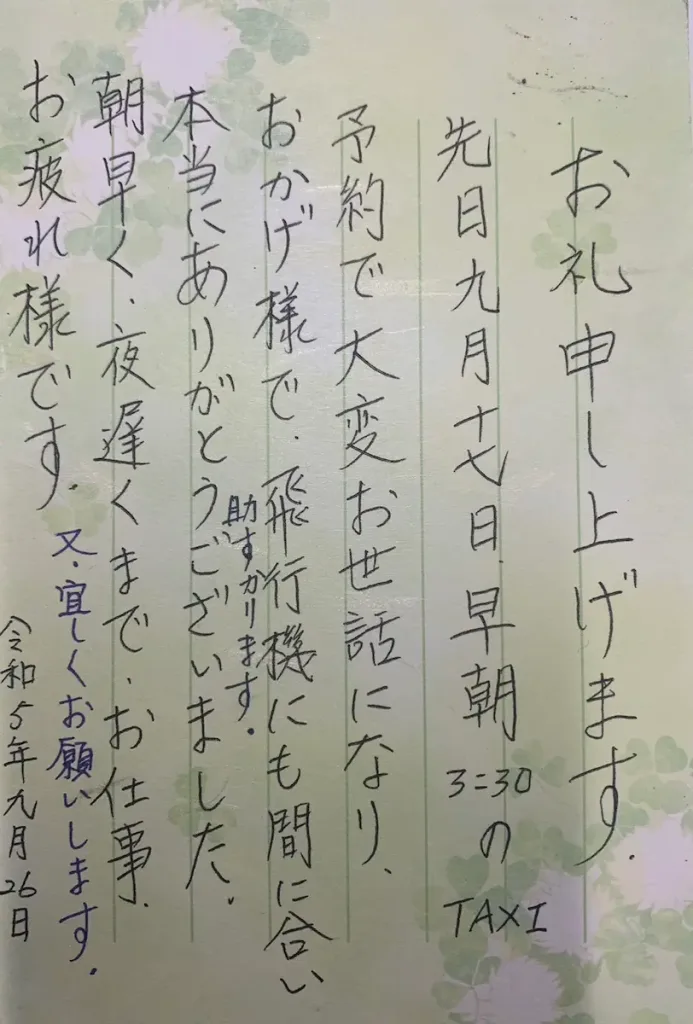 お礼申し上げます.
先日九月十七日.早朝3:30のTAXI
予約で大変お世話になり、
おかげ様で.飛行機にも間に合い
助すかります.
本当にありがとうございました.
朝早く、夜遅くまで.お仕事.
お疲れ様です.
又、宜しくお願いします.
令和5年九月26日